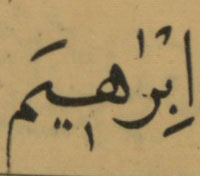 إِبْرَاهِيم